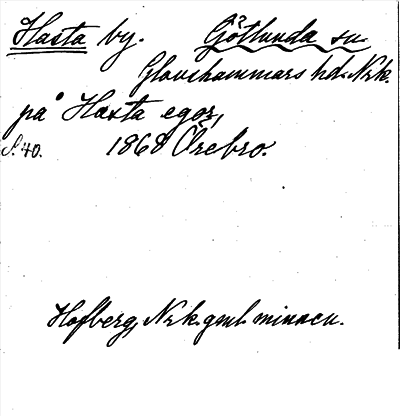 Hasta by. Götlunda sn.
Glanshammars hd. Nrk.
på Hasta egor,
S. 40. 1868 Örebro.
Hofberg, Nrk. gml. minnen.